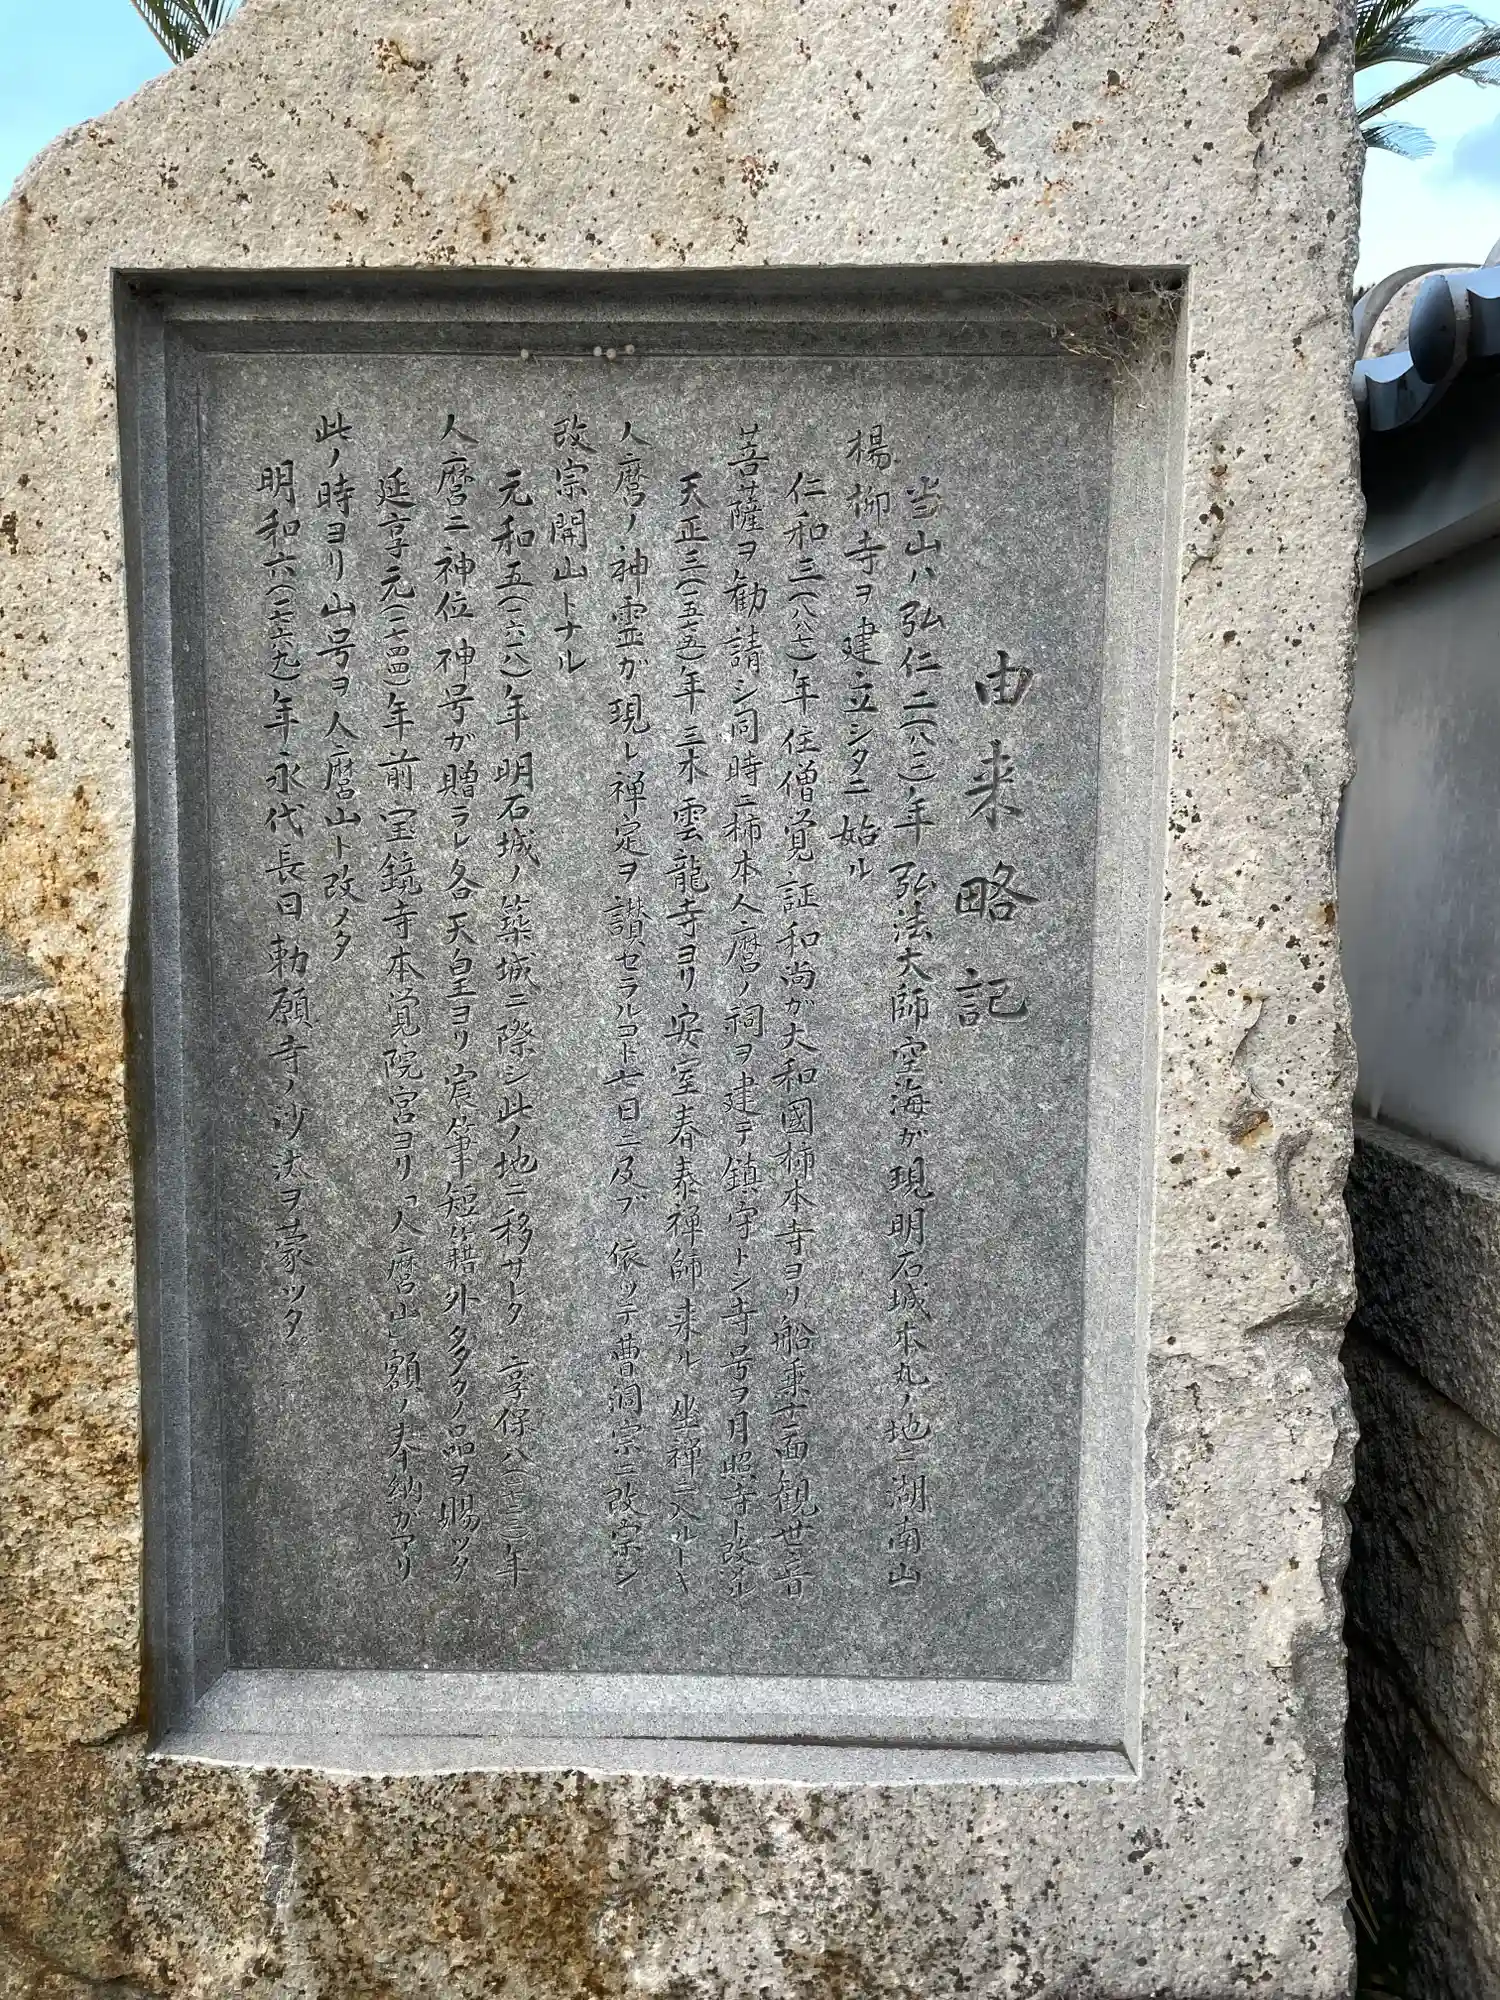 由来略記
当山ハ弘仁二(八一一)年弘法大師空海が現明石城本丸ノ地ニ湖南山
楊柳寺ヲ建立シタニ始ル
仁和三(八八七)年住僧覚証和尚が大和國柿本寺ヨリ船乗十一面観世音
菩薩ヲ勧請シ同時ニ柿本人麿ノ祠ヲ建テ鎮守トシ寺号ヲ月照寺ト改ル
天正三(一五七五)年三木雲龍寺ヨリ安室春泰禅師来ル坐禅ニ入ルトキ
人麿ノ神霊ガ現レ禅定ヲ讃セラルコト七日ニ及ブ 依ッテ曹洞宗ニ改宗シ
改宗開山トナル
元和五(一六一八)年明石城ノ築城ニ際シ此ノ地ニ移サレタ 享保八(一七二三)年
人麿ニ神位 神号が贈ラレ各天皇ヨリ宸筆短籍外タタクノ品ヲ賜ッタ
延享元(一七四四)年前宝鏡寺本覚院宮ヨリ「人麿山」額ノ奉納ガアリ
此ノ時ヨリ山号ヲ人麿山ト改メタ
明和六(一七六九)年永代長日勅願寺ノ沙汰ヲ蒙ッタ